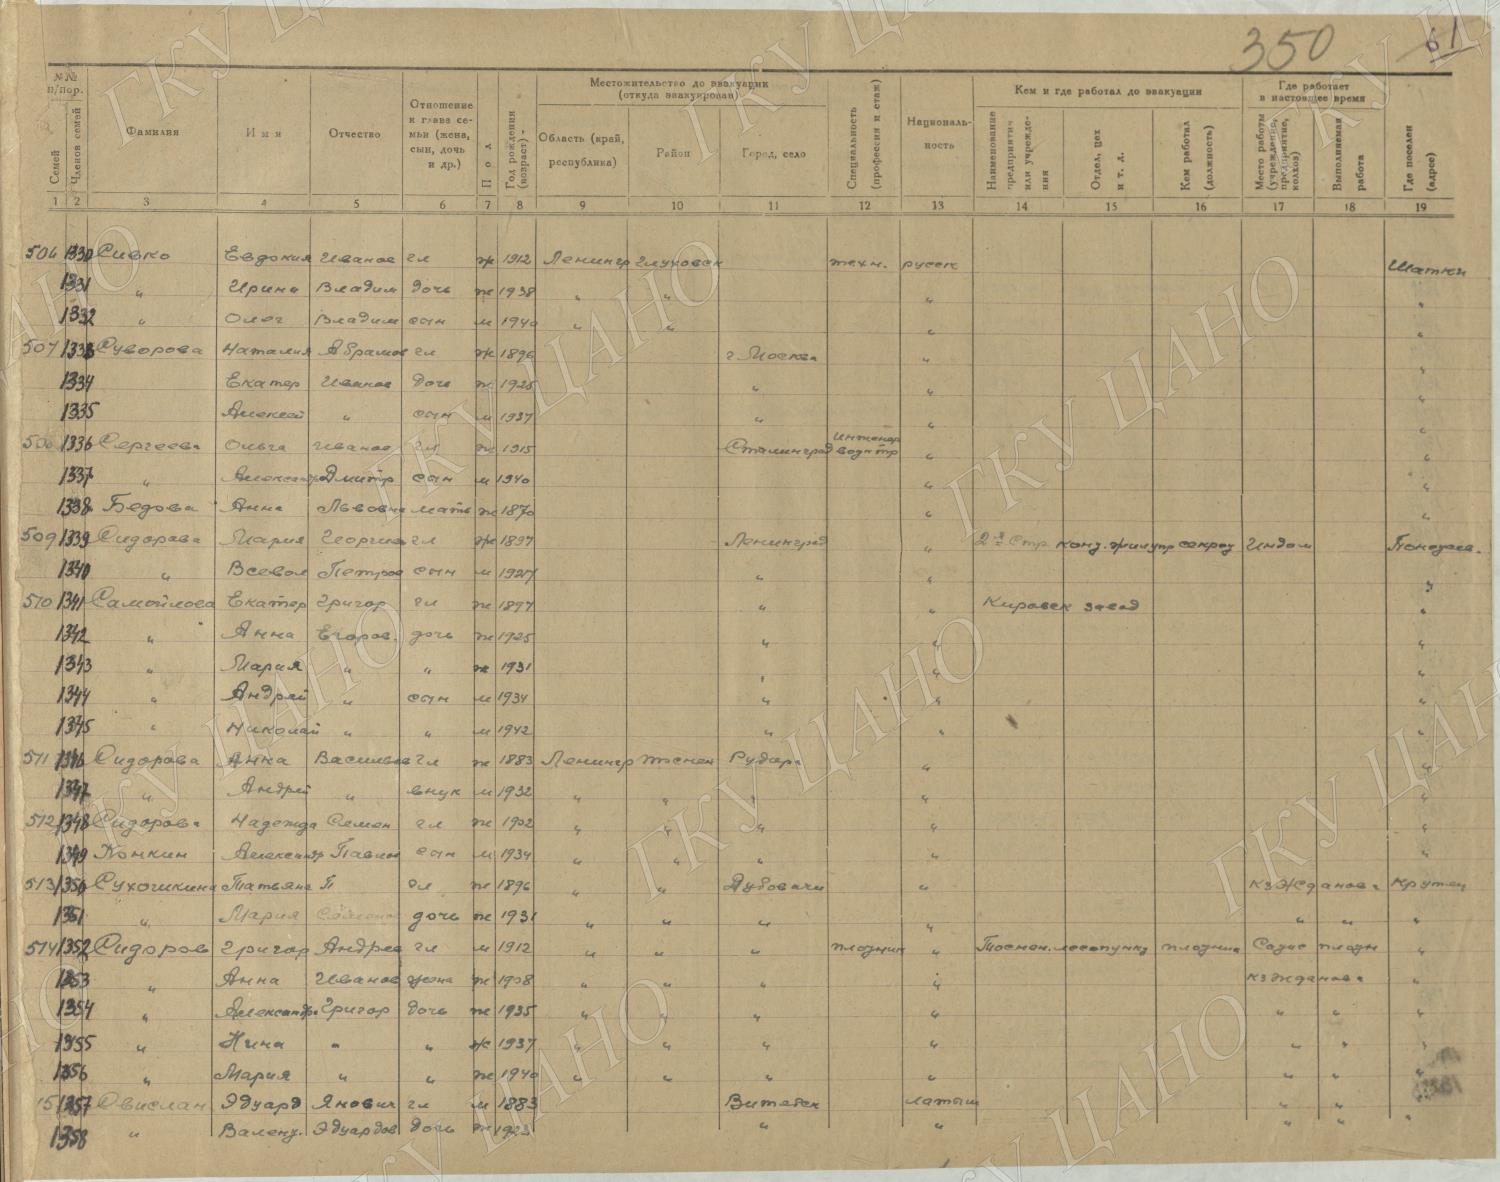 350
61
№№ п/пор.
Семей
Членов семей
Фамилия
Имя
Отчество
Отношение к главе семьи (жена, сын, дочь и др.)
Пол
Год рождения (возраст)
Местожительство до эвакуации (откуда эвакуирован)
Область (край, республика)
Район
Город, село
Специальность (профессия и стаж)
Националь-ность
Кем и где работал до эвакуации
Наименование предприятия или учрежде-ния
Отдел, цех и т. д.
Кем работал (должность)
Где работает в настоящее время
Место работы (учреждение, предприятие, колхоз)
Выполняемая работа
Где поселен (адрес)
1 2 3 4 5 6 7 8 9 10 11 12 13 14 15 16 17 18 19
506 1330 Сивко Евдокия Иванов гл ж 1912 Ленингр Глуховск техн. русск Шатки
1331 " Ирина Владим дочь ж 1938 " " " "
1332 " Олег Владим сын м 1940 " " " "
507 1333 Суворова Наталия Абрамов гл ж 1896 г Москва " "
1334 Екатер Иванов дочь ж 1925 " " "
1335 Алексей " сын м 1937 " " "
508 1336 Сергеева Ольга Иванов гл ж 1915 Сталинград инженер водн тр " "
1337 " Александр Дмитр сын м 1940 " "
1338 Бедова Анна Львовна мать ж 1870 " "
509 1339 Сидорова Мария Георгиев гл ж 1897 Ленинград "
1340 " Всевол Петров сын м 1927 " " "
510 1341 Самойлова Екатер Григор гл ж 1897 " " Кировск завод "
1342 " Анна Егоров. дочь ж 1925 " " "
1343 " Мария " " ж 1931 " " "
1344 " Андрей " сын м 1934 " " "
1345 " Николай " " м 1942 " " "
511 1346 Сидорова Анна Васильев гл ж 1883 Ленингр Тоснен " "
1347 " Андрей " внук м 1932 " " " " "
512 1348 Сидорова Надежда Семен гл ж 1902 " " " " "
1349 Конкин Александр Павлов сын м 1934 " " " " "
513 1350 Татьяна П гл ж 1896 " " Дубовачи " кз Жданова Крутец
1351 " Мария дочь ж 1931 " " " " " " "
514 1352 Сидоров Григор Андрее гл м 1912 " " " плотник " Тоснен. леспункт плотник плотн "
1353 " Анна Иванов жена ж 1908 " " " " кз Жданова "
1354 " Александр. Григор дочь ж 1935 " " " " " " "
1355 " Нина " " ж 1937 " " " " " " "
1356 " Мария " " ж 1940 " " " " " " "
15 1357 Эдуард Янович гл м 1883 Витебск латыш " " "
1358 " Валент. Эдуардов дочь ж 1923 " " " " "
ГКУ ЦАНО